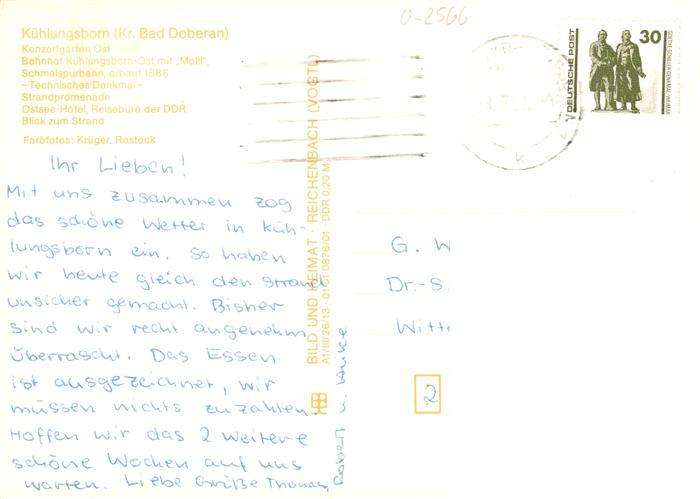 U-2566
Kühlungsborn (Kr. Bad Doberan)
Konzertgarten Ost
Bahnhof Kühlungsborn-Ost mit „Molli",
Schmalspurbahn, erbaut 1886
–Technisches Denkmal–
Strandpromenade
Ostsee-Hotel, Reisebüro der DDR
Blick zum Strand
Farbfotos: Krüger, Rostock
Ihr Lieben!
Mit uns zusammen zog
das schöne Wetter in Küh-
lungsborn ein. So haben
wir heute gleich den Strand
unsicher gemacht. Bisher
sind wir recht angenehm
überrascht. Das Essen
ist ausgezeichnet, wir
müssen nichts zuzahlen.
Hoffen wir das 2 weitere
schöne Wochen auf uns
warten. Liebe Grüße Thomas,
Robert u.
BILD UND HEIMAT · REICHENBACH (VOGTL)
A1/III/26/13 DDR 0,20 M
DEUTSCHE POST
30
GOETHE-SCHILLER-DENKMAL WEIMAR
G. W
Dr.-S.
Witt
2